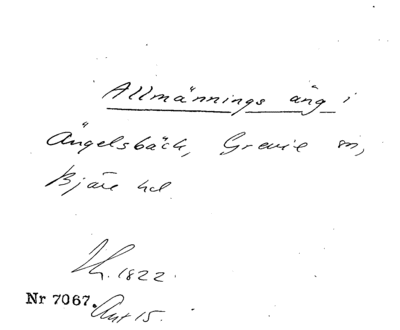 Allmännings äng i
Ängelsbäck, Grevie sn,
Bjäre hd
Th. 1822.
Nr 7067.
Ant 15.